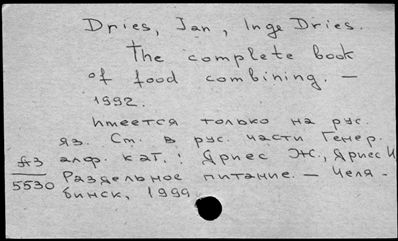 Dries, Jan, Inge Dries.
The complete book
of food combining. –
1992.
Имеется только на рус.
яз. См. в рус. части Генер.
алф. кат.: Дриес Ж., Дриес И
Раздельное питание. – Челя-
5530
бинск, 1999